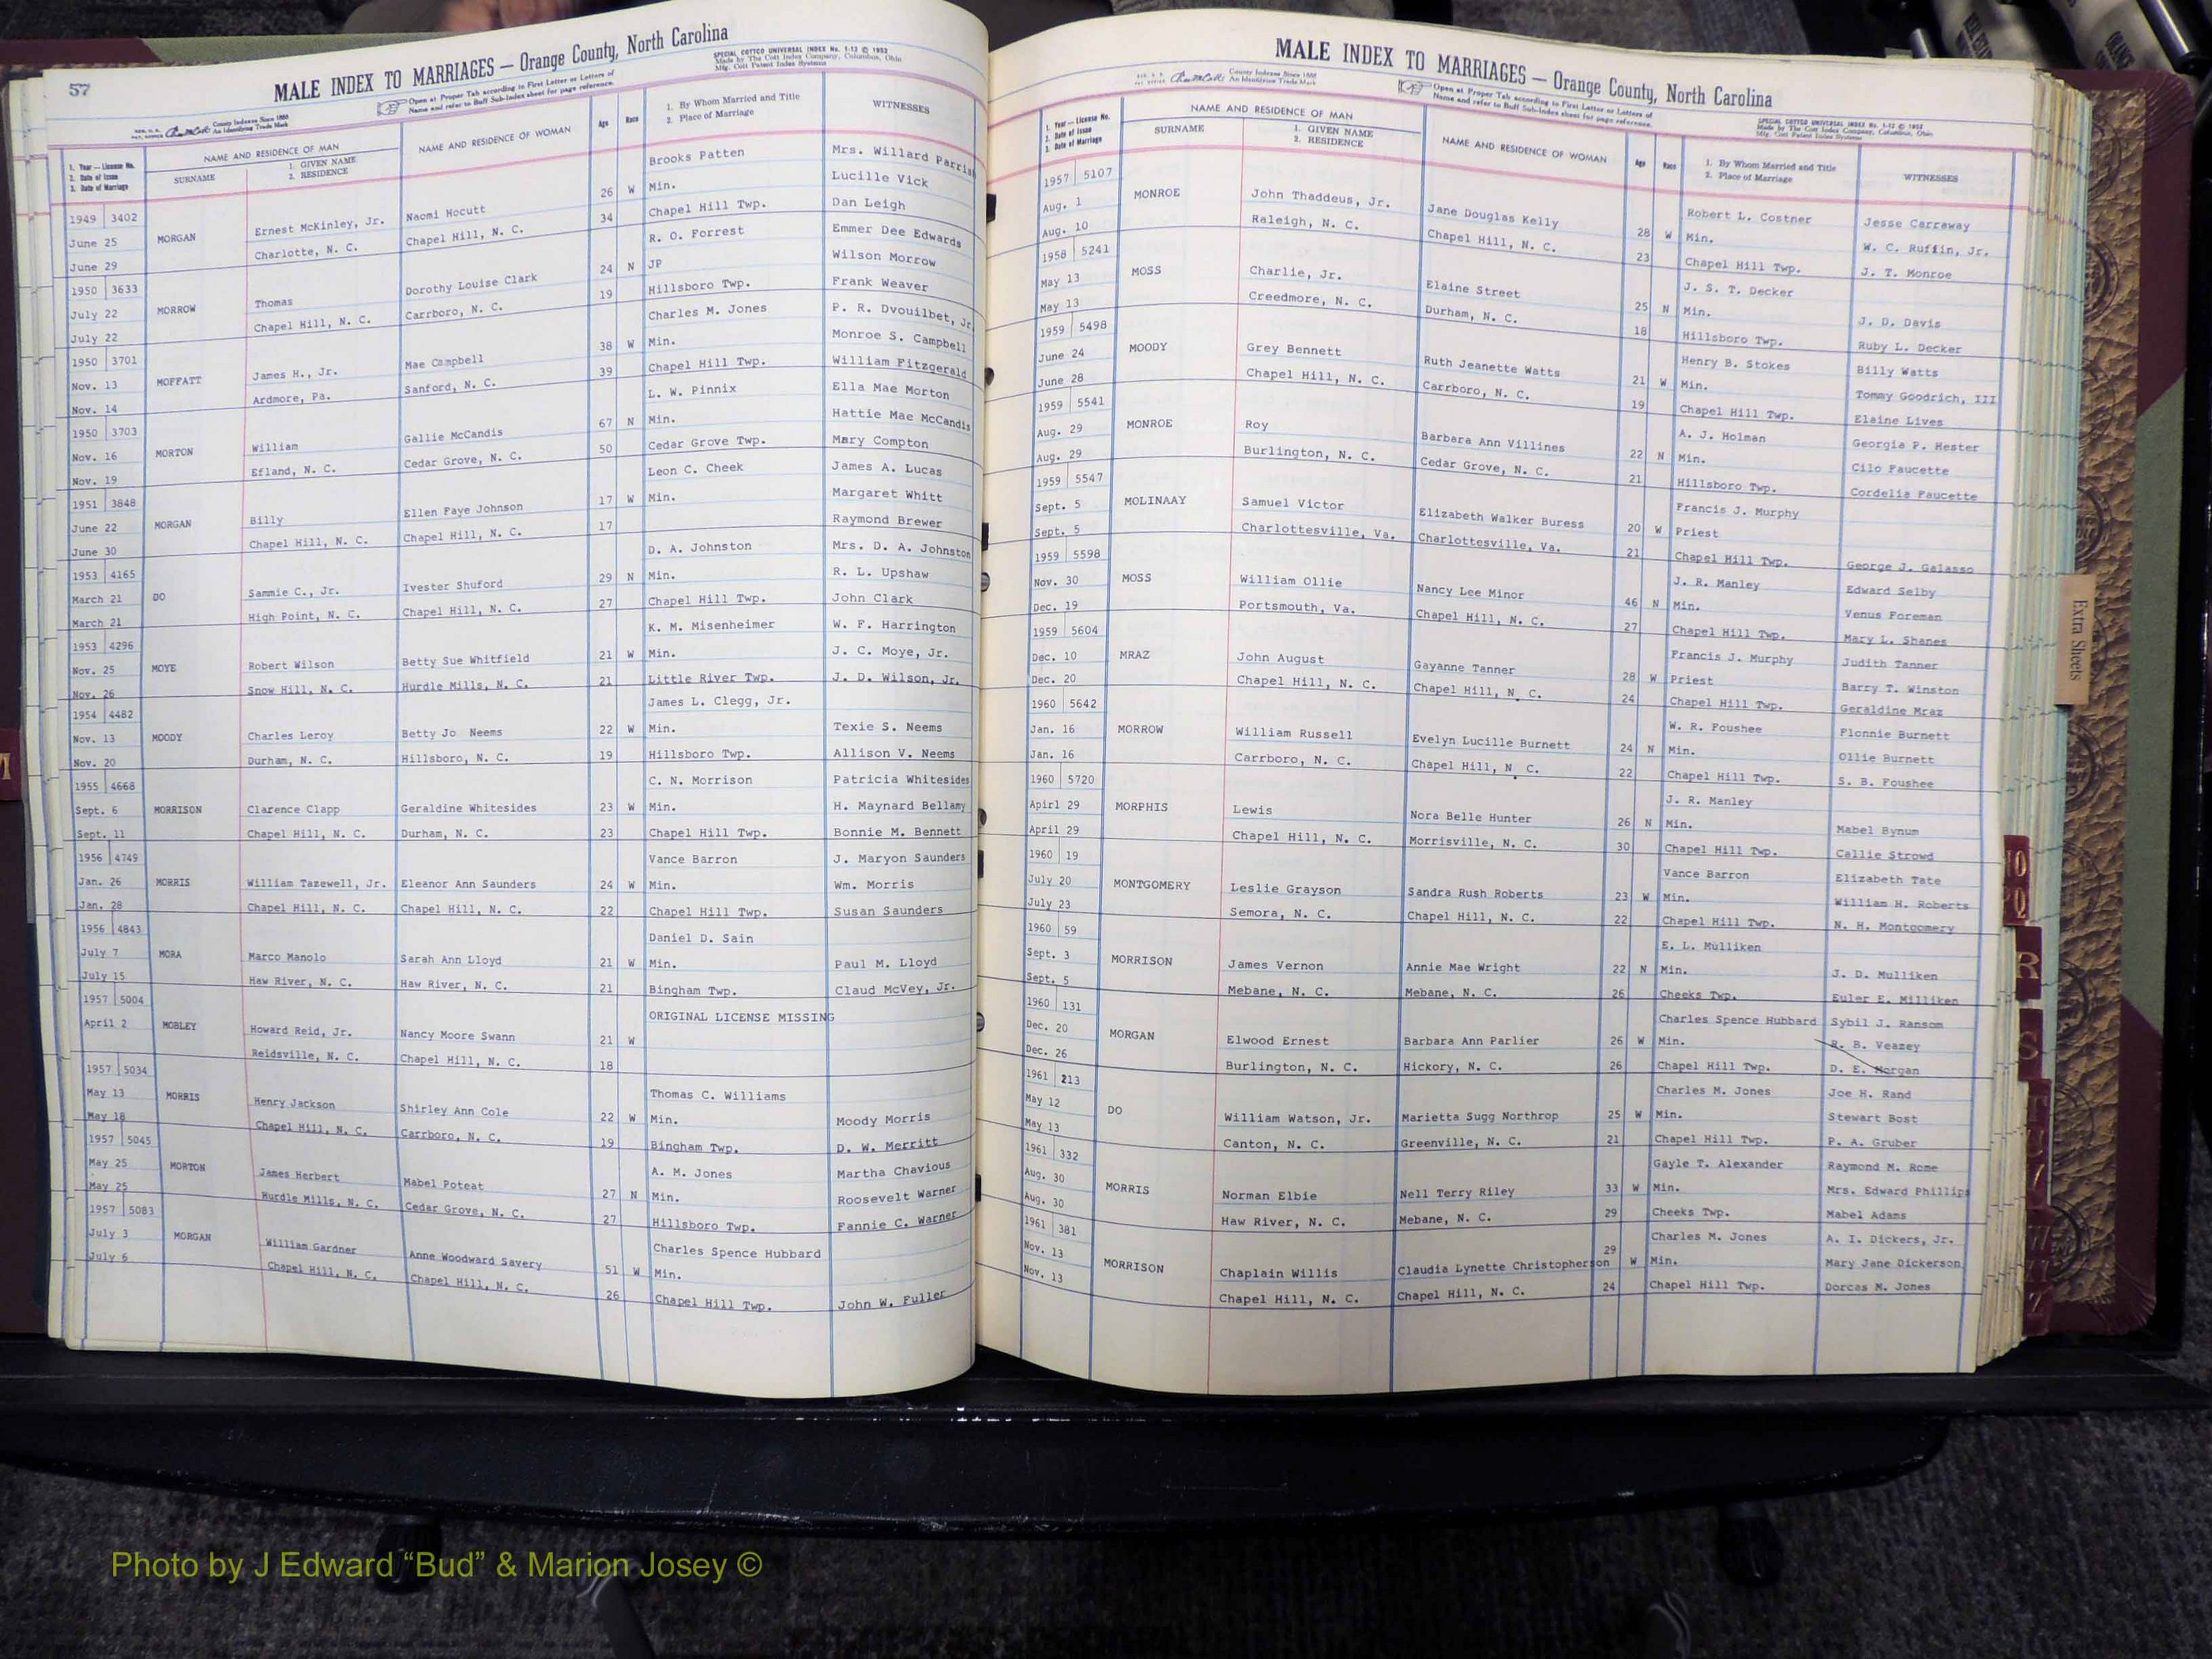 57
MALE INDEX TO MARRIAGES — Orange County, North Carolina
SPECIAL COTTCO UNIVERSAL INDEX No. 1-12 © 1952
Made by The Cott Index Company, Columbus, Ohio
Mfg. Cott Patent Index Systems
Open at Proper Tab according to First Letter or Letters of
Name and refer to Buff Sub-Index sheet for page reference.
County Indexes Since 1888
An Identifying Trade Mark
1. Year — License No.
2. Date of Issue
3. Date of Marriage
NAME AND RESIDENCE OF MAN
SURNAME
1. GIVEN NAME
2. RESIDENCE
NAME AND RESIDENCE OF WOMAN
Age
Race
1. By Whom Married and Title
2. Place of Marriage
WITNESSES
1949 3402 Brooks Patten Mrs. Willard Parrish
June 25 MORGAN Ernest McKinley, Jr. Naomi Hocutt 26 W Min. Lucille Vick
June 29 Charlotte, N. C. Chapel Hill, N. C. 34 Chapel Hill Twp. Dan Leigh
1950 3633 R. O. Forrest Emmer Dee Edwards
July 22 MORROW Thomas Dorothy Louise Clark 24 N JP Wilson Morrow
July 22 Chapel Hill, N. C. Carrboro, N. C. 19 Hillsboro Twp. Frank Weaver
1950 3701 Charles M. Jones P. R. Dvouilbet, Jr.
Nov. 13 MOFFATT James H., Jr. Mae Campbell 38 W Min. Monroe S. Campbell
Nov. 14 Ardmore, Pa. Sanford, N. C. 39 Chapel Hill Twp. William Fitzgerald
1950 3703 L. W. Pinnix Ella Mae Morton
Nov. 16 MORTON William Gallie McCandis 67 N Min. Hattie Mae McCandis
Nov. 19 Efland, N. C. Cedar Grove, N. C. 50 Cedar Grove Twp. Mary Compton
1951 3848 Leon C. Cheek James A. Lucas
June 22 MORGAN Billy Ellen Faye Johnson 17 W Min. Margaret Whitt
June 30 Chapel Hill, N. C. Chapel Hill, N. C. 17 Raymond Brewer
1953 4165 D. A. Johnston Mrs. D. A. Johnston
March 21 DO Sammie C., Jr. Ivester Shuford 29 N Min. R. L. Upshaw
March 21 High Point, N. C. Chapel Hill, N. C. 27 Chapel Hill Twp. John Clark
1953 4296 K. M. Misenheimer W. F. Harrington
Nov. 25 MOYE Robert Wilson Betty Sue Whitfield 21 W Min. J. C. Moye, Jr.
Nov. 26 Snow Hill, N. C. Hurdle Mills, N. C. 21 Little River Twp. J. D. Wilson, Jr.
1954 4482 James L. Clegg, Jr.
Nov. 13 MOODY Charles Leroy Betty Jo Neems 22 W Min. Texie S. Neems
Nov. 20 Durham, N. C. Hillsboro, N. C. 19 Hillsboro Twp. Allison V. Neems
1955 4668 C. N. Morrison Patricia Whitesides
Sept. 6 MORRISON Clarence Clapp Geraldine Whitesides 23 W Min. H. Maynard Bellamy
Sept. 11 Chapel Hill, N. C. Durham, N. C. 23 Chapel Hill Twp. Bonnie M. Bennett
1956 4749 Vance Barron J. Maryon Saunders
Jan. 26 MORRIS William Tazewell, Jr. Eleanor Ann Saunders 24 W Min. Wm. Morris
Jan. 28 Chapel Hill, N. C. Chapel Hill, N. C. 22 Chapel Hill Twp. Susan Saunders
1956 4843 Daniel D. Sain
July 7 MORA Marco Manolo Sarah Ann Lloyd 21 W Min. Paul M. Lloyd
July 15 Haw River, N. C. Haw River, N. C. 21 Bingham Twp. Claud McVey, Jr.
1957 5004 ORIGINAL LICENSE MISSING
April 2 MOBLEY Howard Reid, Jr. Nancy Moore Swann 21 W
Reidsville, N. C. Chapel Hill, N. C. 18
1957 5034 Thomas C. Williams
May 13 MORRIS Henry Jackson Shirley Ann Cole 22 W Min. Moody Morris
May 18 Chapel Hill, N. C. Carrboro, N. C. 19 Bingham Twp. D. W. Merritt
1957 5045 A. M. Jones Martha Chavious
May 25 MORTON James Herbert Mabel Poteat 27 N Min. Roosevelt Warner
May 25 Hurdle Mills, N. C. Cedar Grove, N. C. 27 Hillsboro Twp. Fannie C. Warner
1957 5083 Charles Spence Hubbard
July 3 MORGAN William Gardner Anne Woodward Savery 51 W Min.
July 6 Chapel Hill, N. C. Chapel Hill, N. C. 26 Chapel Hill Twp. John W. Fuller
MALE INDEX TO MARRIAGES — Orange County, North Carolina
County Indexes Since 1888
An Identifying Trade Mark
Open at Proper Tab according to First Letter or Letters of
Name and refer to Buff Sub-Index sheet for page reference.
SPECIAL COTTCO UNIVERSAL INDEX No. 1-12 © 1952
Made by The Cott Index Company, Columbus, Ohio
Mfg. Cott Patent Index Systems
1. Year — License No.
2. Date of Issue
3. Date of Marriage
NAME AND RESIDENCE OF MAN
SURNAME
1. GIVEN NAME
2. RESIDENCE
NAME AND RESIDENCE OF WOMAN
Age
Race
1. By Whom Married and Title
2. Place of Marriage
WITNESSES
1957 5107 Robert L. Costner Jesse Carraway
Aug. 1 MONROE John Thaddeus, Jr. Jane Douglas Kelly 28 W Min. W. C. Ruffin, Jr.
Aug. 10 Raleigh, N. C. Chapel Hill, N. C. 23 Chapel Hill Twp. J. T. Monroe
1958 5241 J. S. T. Decker
May 13 MOSS Charlie, Jr. Elaine Street 25 N Min. J. D. Davis
May 13 Creedmore, N. C. Durham, N. C. 18 Hillsboro Twp. Ruby L. Decker
1959 5498 Henry B. Stokes Billy Watts
June 24 MOODY Grey Bennett Ruth Jeanette Watts 21 W Min. Tommy Goodrich, III
June 28 Chapel Hill, N. C. Carrboro, N. C. 19 Chapel Hill Twp. Elaine Lives
1959 5541 A. J. Holman Georgia P. Hester
Aug. 29 MONROE Roy Barbara Ann Villines 22 N Min. Cilo Faucette
Aug. 29 Burlington, N. C. Cedar Grove, N. C. 21 Hillsboro Twp. Cordelia Faucette
1959 5547 Francis J. Murphy
Sept. 5 MOLINAAY Samuel Victor Elizabeth Walker Buress 20 W Priest
Sept. 5 Charlottesville, Va. Charlottesville, Va. 21 Chapel Hill Twp. George J. Galasso
1959 5598 J. R. Manley Edward Selby
Nov. 30 MOSS William Ollie Nancy Lee Minor 46 N Min. Venus Foreman
Dec. 19 Portsmouth, Va. Chapel Hill, N. C. 27 Chapel Hill Twp. Mary L. Shanes
1959 5604 Francis J. Murphy Judith Tanner
Dec. 10 MRAZ John August Gayanne Tanner 28 W Priest Barry T. Winston
Dec. 20 Chapel Hill, N. C. Chapel Hill, N. C. 24 Chapel Hill Twp. Geraldine Mraz
1960 5642 W. R. Foushee Flonnie Burnett
Jan. 16 MORROW William Russell Evelyn Lucille Burnett 24 N Min. Ollie Burnett
Jan. 16 Carrboro, N. C. Chapel Hill, N. C. 22 Chapel Hill Twp. S. B. Foushee
1960 5720 J. R. Manley
Apirl 29 MORPHIS Lewis Nora Belle Hunter 26 N Min. Mabel Bynum
April 29 Chapel Hill, N. C. Morrisville, N. C. 30 Chapel Hill Twp. Callie Strowd
1960 19 Vance Barron Elizabeth Tate
July 20 MONTGOMERY Leslie Grayson Sandra Rush Roberts 23 W Min. William H. Roberts
July 23 Semora, N. C. Chapel Hill, N. C. 22 Chapel Hill Twp. N. H. Montgomery
1960 59 E. L. Mulliken
Sept. 3 MORRISON James Vernon Annie Mae Wright 22 N Min. J. D. Mulliken
Sept. 5 Mebane, N. C. Mebane, N. C. 26 Cheeks Twp. Euler E. Milliken
1960 131 Charles Spence Hubbard Sybil J. Ransom
Dec. 20 MORGAN Elwood Ernest Barbara Ann Parlier 26 W Min. R. B. Veazey
Dec. 26 Burlington, N. C. Hickory, N. C. 26 Chapel Hill Twp. D. E. Morgan
1961 213 Charles M. Jones Joe H. Rand
May 12 DO William Watson, Jr. Marietta Sugg Northrop 25 W Min. Stewart Bost
May 13 Canton, N. C. Greenville, N. C. 21 Chapel Hill Twp. P. A. Gruber
1961 332 Gayle T. Alexander Raymond M. Rome
Aug. 30 MORRIS Norman Elbie Nell Terry Riley 33 W Min. Mrs. Edward Phillips
Aug. 30 Haw River, N. C. Mebane, N. C. 29 Cheeks Twp. Mabel Adams
1961 381 Charles M. Jones A. I. Dickers, Jr.
Nov. 13 MORRISON Chaplain Willis Claudia Lynette Christopherson 29 W Min. Mary Jane Dickerson
Nov. 13 Chapel Hill, N. C. Chapel Hill, N. C. 24 Chapel Hill Twp. Dorcas M. Jones
Extra Sheets
R
S
Photo by J Edward “Bud” & Marion Josey ©